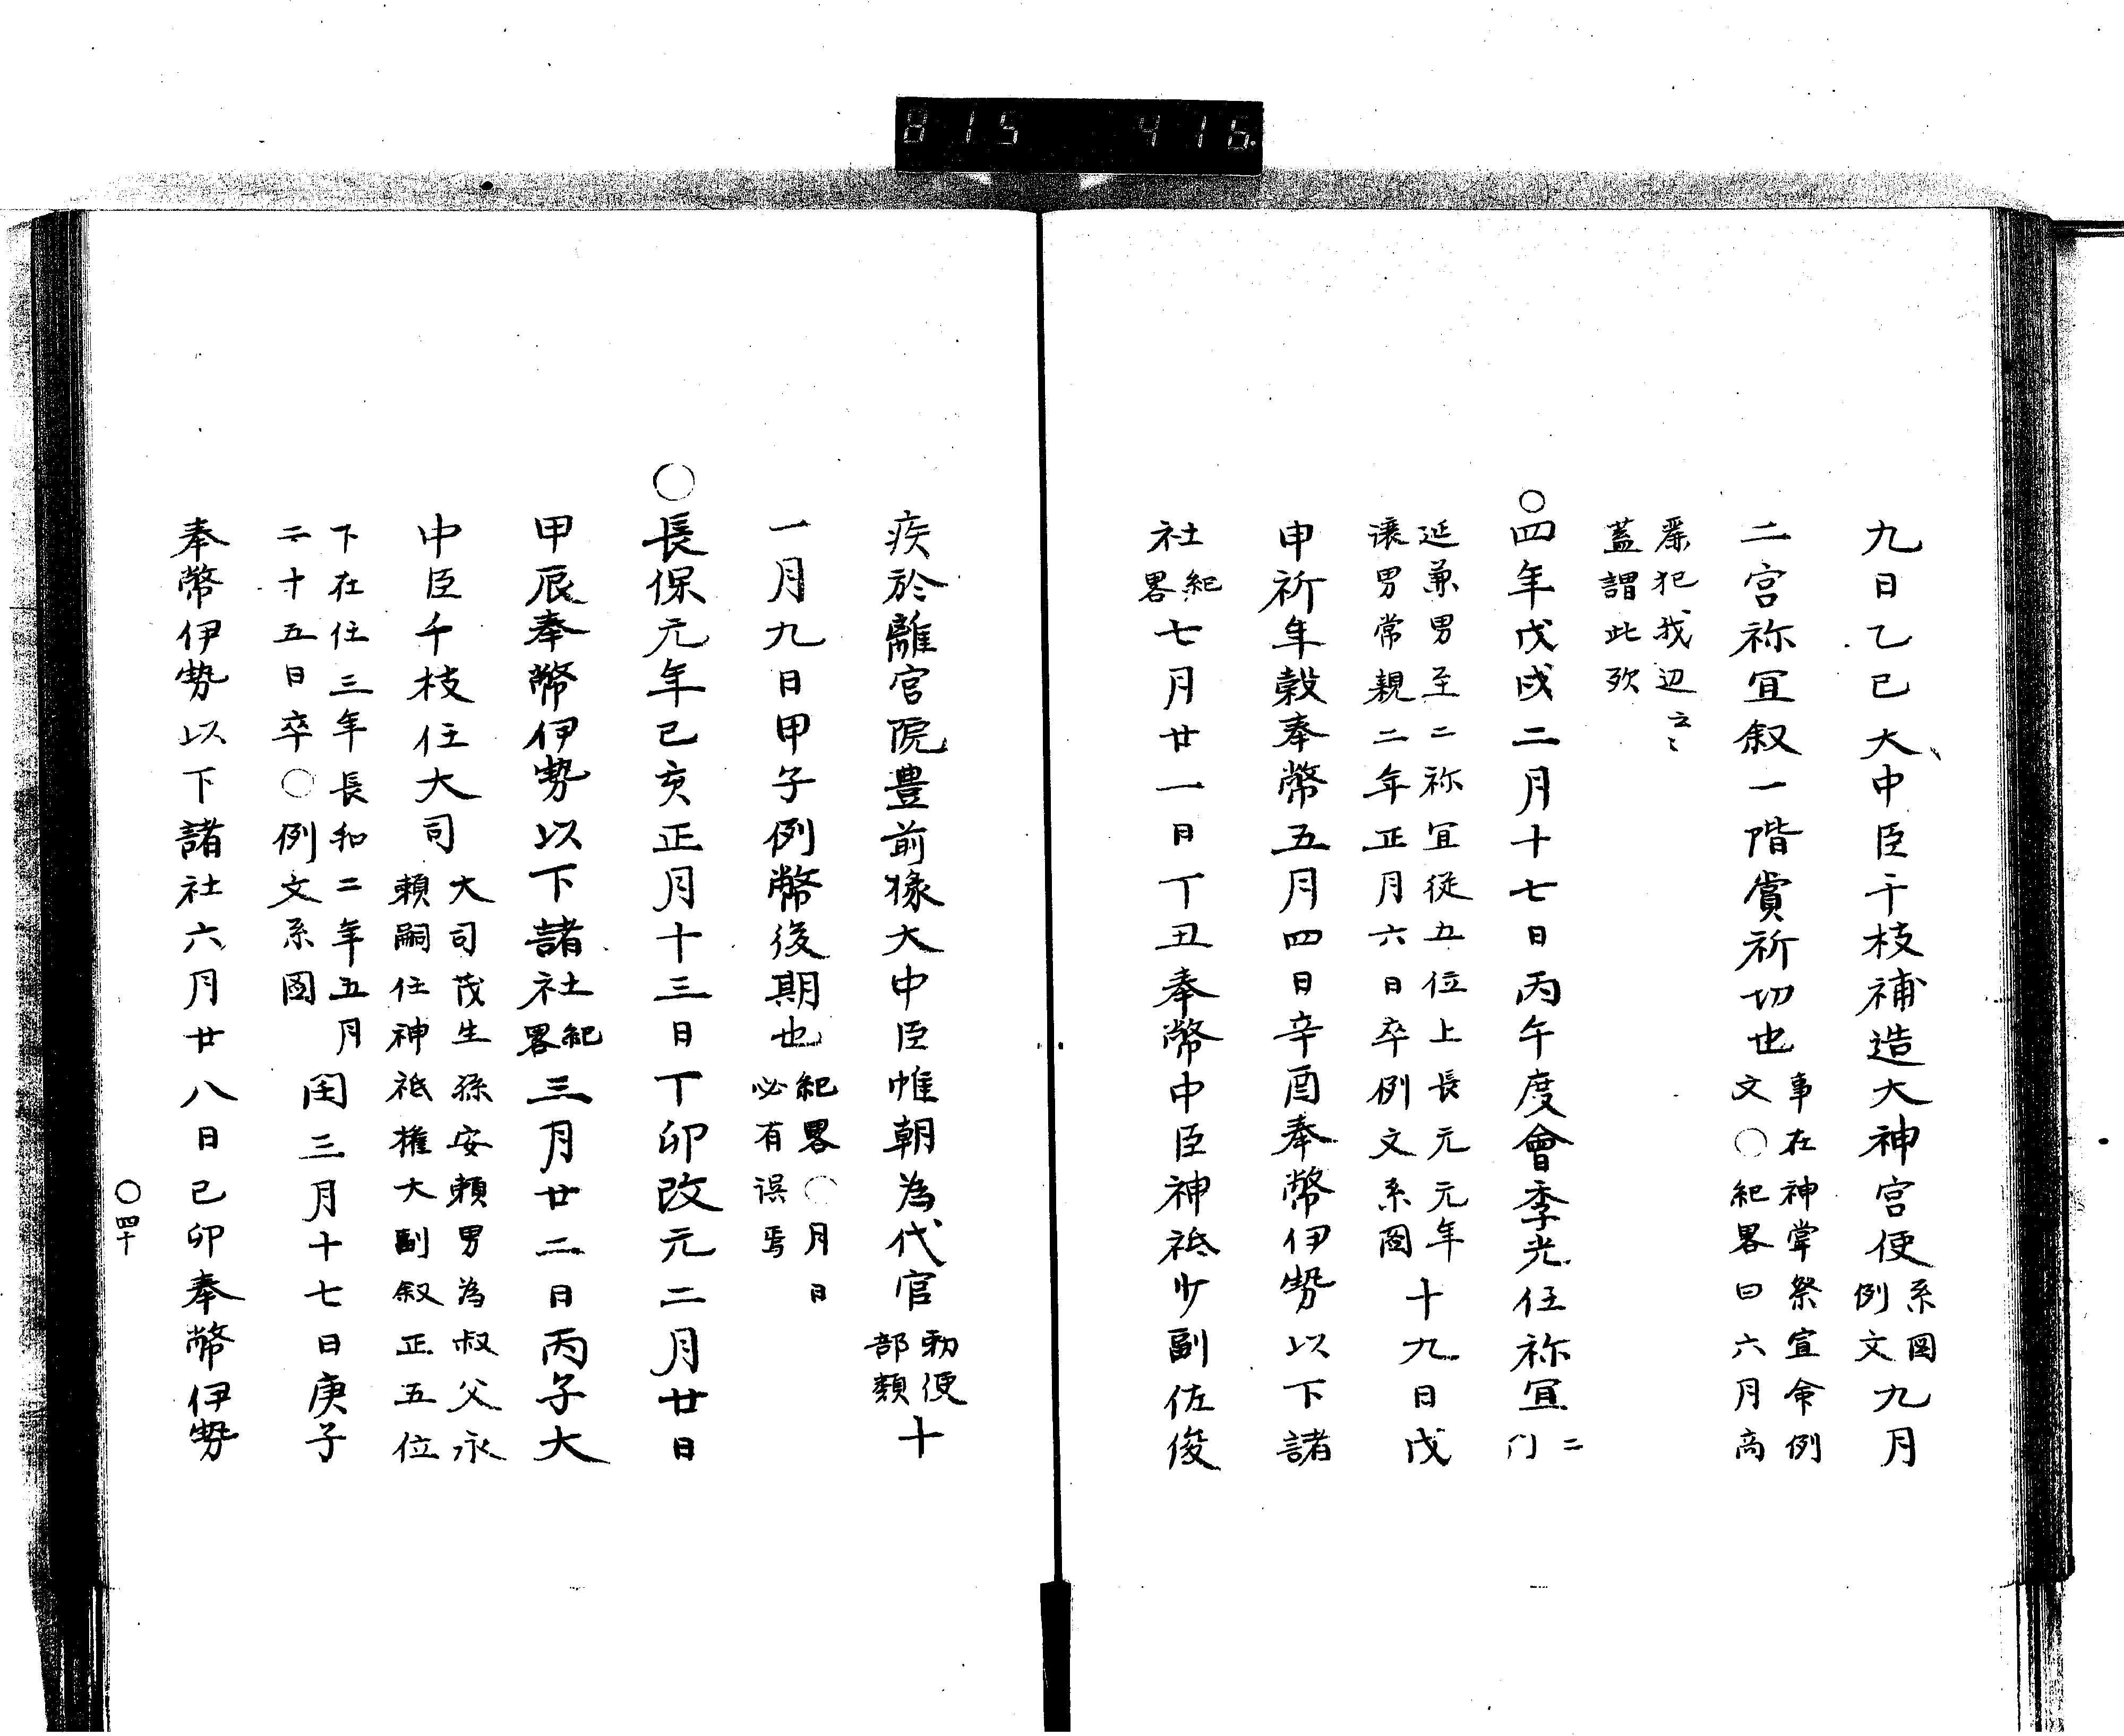 815 416
九日乙巳大中臣千枝補造大神宮使系図例文九月
二宮祢宜叙一階賞祈切也事在神掌祭宣命例文○紀畧曰六月高
麗犯我辺云々蓋謂此欤
○四年戊戌二月十七日丙午度會季光任祢宜二門
延兼男至二祢宜従五位上長元元年讓男常親二年正月六日卒例文系圖十九日戊
申祈年穀奉幣五月四日辛酉奉幣伊勢以下諸
社紀畧七月廿一日丁丑奉幣中臣神祇少副佐俊
疾於離宮院豊前掾大中臣惟朝為代官勅使部類十
一月九日甲子例幣後期也紀畧○月日必有誤焉
○長保元年己亥正月十三日丁卯改元二月廿日
甲辰奉幣伊勢以下諸社紀畧三月廿二日丙子大
中臣千枝任大司大司茂生孫安頼男為叔父永頼嗣任神祇権大副叙正五位
下在任三年長和二年五月二十五日卒○例文系図閏三月十七日庚子
奉幣伊勢以下諸社六月廿八日己卯奉幣伊勢
○四十